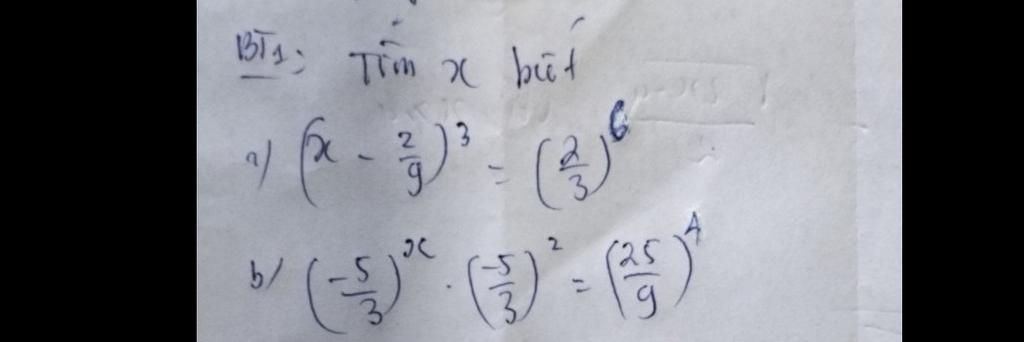 BT1: Tìm x biết
a) (x - 2/9)^3 = (2/3)^6
b) (-5/3)^x . (-5/3)^2 = (25/9)^4